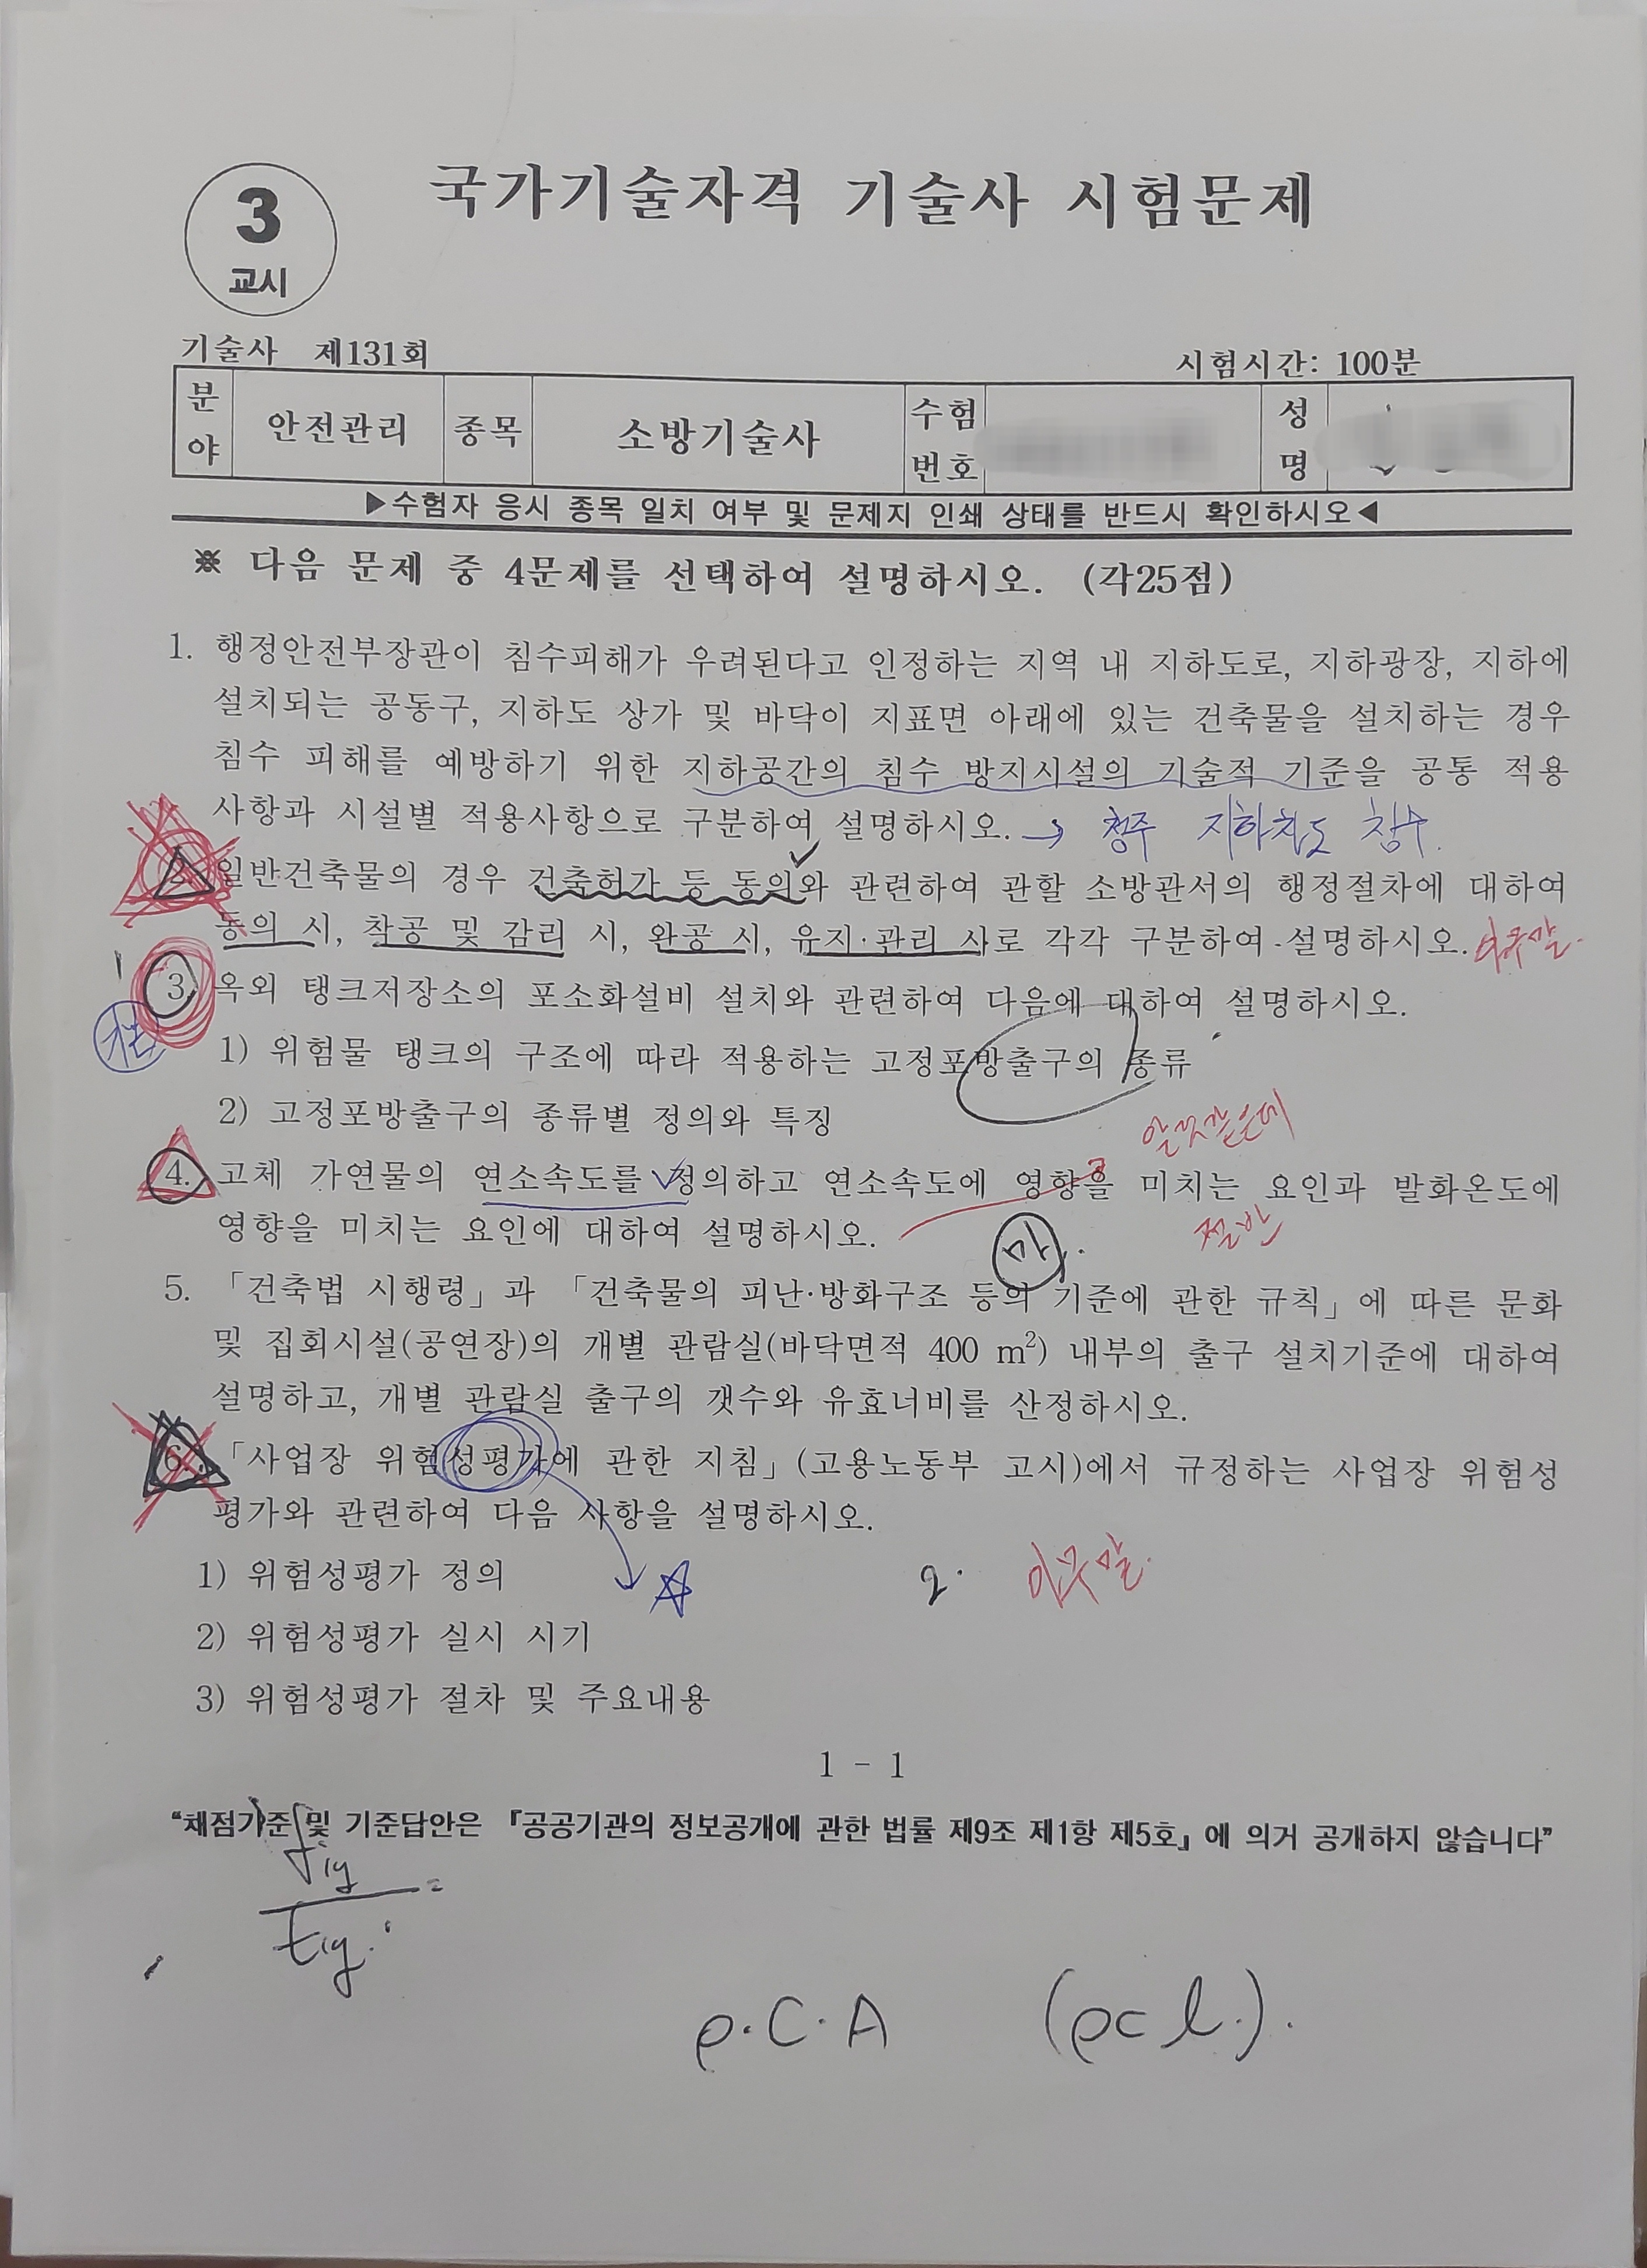 3
교시
국가기술자격 기술사 시험문제
기술사 제131회
시험시간: 100분
분야 안전관리 종목 소방기술사 수험번호 성명
▶수험자 응시 종목 일치 여부 및 문제지 인쇄 상태를 반드시 확인하시오◀
※ 다음 문제 중 4문제를 선택하여 설명하시오. (각25점)
1. 행정안전부장관이 침수피해가 우려된다고 인정하는 지역 내 지하도로, 지하광장, 지하에
설치되는 공동구, 지하도 상가 및 바닥이 지표면 아래에 있는 건축물을 설치하는 경우
침수 피해를 예방하기 위한 지하공간의 침수 방지시설의 기술적 기준을 공통 적용
사항과 시설별 적용사항으로 구분하여 설명하시오. → 청주 지하차도 침수.
2. 일반건축물의 경우 건축허가 등 동의와 관련하여 관할 소방관서의 행정절차에 대하여
동의 시, 착공 및 감리 시, 완공 시, 유지·관리 시로 각각 구분하여 설명하시오. 아무말.
1
3. 옥외 탱크저장소의 포소화설비 설치와 관련하여 다음에 대하여 설명하시오.
1) 위험물 탱크의 구조에 따라 적용하는 고정포방출구의 종류
2) 고정포방출구의 종류별 정의와 특징
알것같은데
4. 고체 가연물의 연소속도를 정의하고 연소속도에 영향을 미치는 요인과 발화온도에
영향을 미치는 요인에 대하여 설명하시오.
절반
5. 「건축법 시행령」과 「건축물의 피난·방화구조 등의 기준에 관한 규칙」에 따른 문화
및 집회시설(공연장)의 개별 관람실(바닥면적 400 m²) 내부의 출구 설치기준에 대하여
설명하고, 개별 관람실 출구의 갯수와 유효너비를 산정하시오.
6. 「사업장 위험성평가에 관한 지침」(고용노동부 고시)에서 규정하는 사업장 위험성
평가와 관련하여 다음 사항을 설명하시오.
1) 위험성평가 정의
2. 아무말.
2) 위험성평가 실시 시기
3) 위험성평가 절차 및 주요내용
1 - 1
“채점기준 및 기준답안은 『공공기관의 정보공개에 관한 법률 제9조 제1항 제5호』에 의거 공개하지 않습니다”
ρ·C·A (ρcl.).